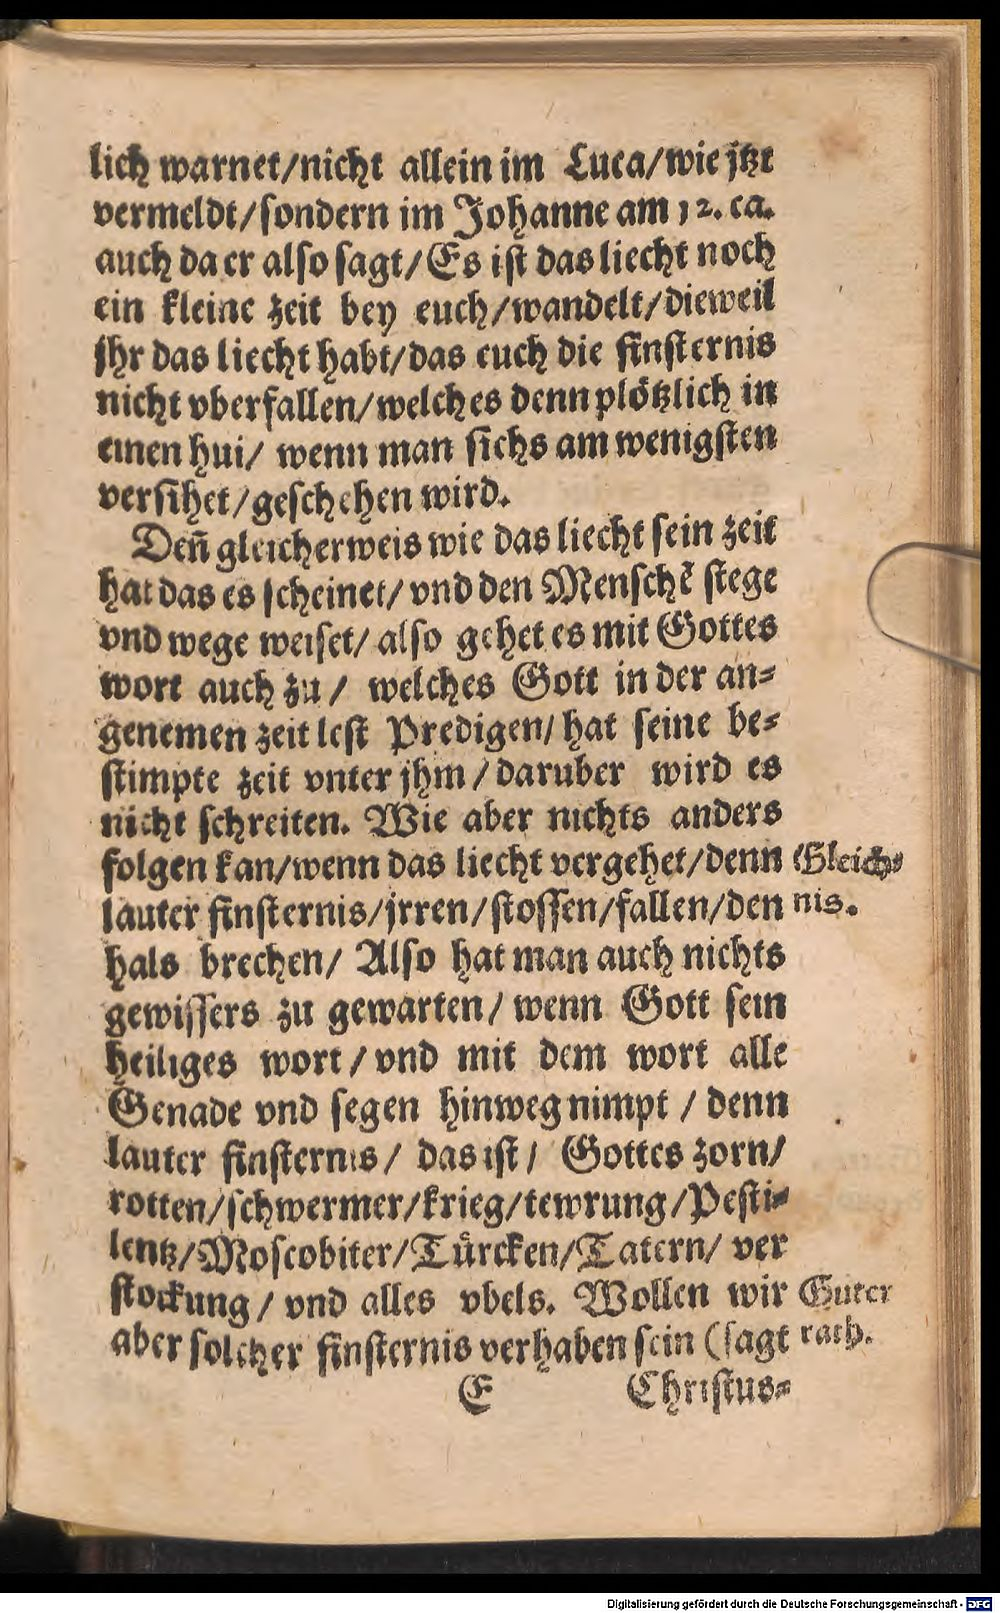 lich warnet/nicht allein im Luca/wie jtzt
vermeldt/sondern im Johanne am 12. ca.
auch da er also sagt/Es ist das liecht noch
ein kleine zeit bey euch/wandelt/dieweil
jhr das liecht habt/das euch die finsternis
nicht vberfallen/welches denn plötzlich in
einen hui/ wenn man sichs am wenigsten
versihet/geschehen wird.
Deñ gleicherweis wie das liecht sein zeit
hat das es scheinet/ vnd den Menschẽ stege
vnd wege weiset/ also gehet es mit Gottes
wort auch zu/ welches Gott in der an-
genemen zeit lest Predigen/ hat seine be-
stimpte zeit vnter jhm/daruber wird es
nicht schreiten. Wie aber nichts anders
folgen kan/wenn das liecht vergehet/denn
lauter finsternis/jrren/stossen/fallen/den
hals brechen/ Also hat man auch nichts
gewissers zu gewarten/ wenn Gott sein
heiliges wort/vnd mit dem wort alle
Genade vnd segen hinweg nimpt/denn
lauter finsternis/ das ist/ Gottes zorn/
rotten/schwermer/krieg/tewrung/Pesti-
lentz/Moscobiter/Tuͤrcken/Tatern/ ver
stockung/ vnd alles vbels. Wollen wir
aber solcher finsternis verhaben sein (sagt
Gleich-
nis.
Guter
rath.
E Christus-
Digitalisierung gefördert durch die Deutsche Forschungsgemeinschaft - DFG